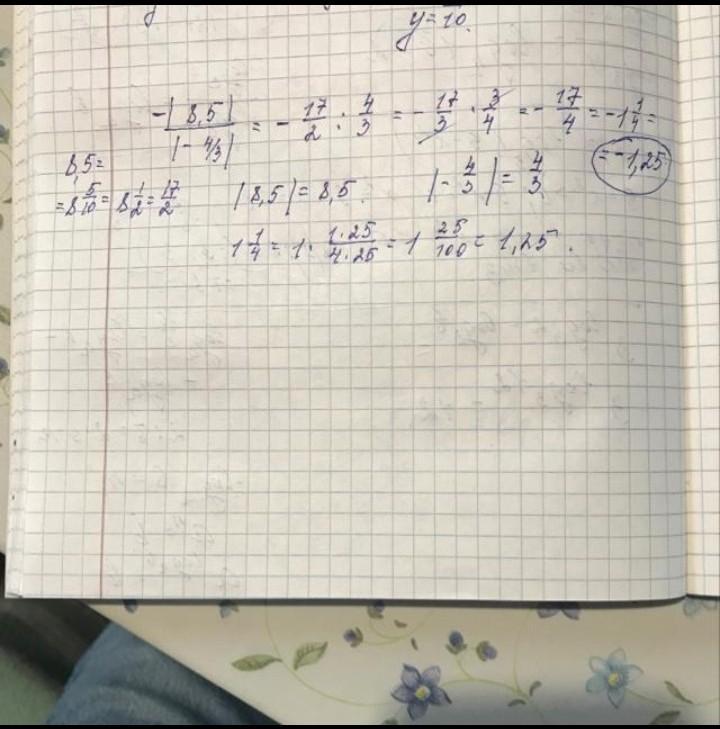 y = /10
-|8,5| / |-4/3| = - 17/2 : 4/3 = - 17/3 · 3/4 = - 17/4 = -1 1/4 =
= -1,25
8,5 =
= 8 5/10 = 8 1/2 = 17/2 |8,5| = 8,5. |- 4/3| = 4/3
1 1/4 = 1 · 1·25/4·25 = 1 25/100 = 1,25.